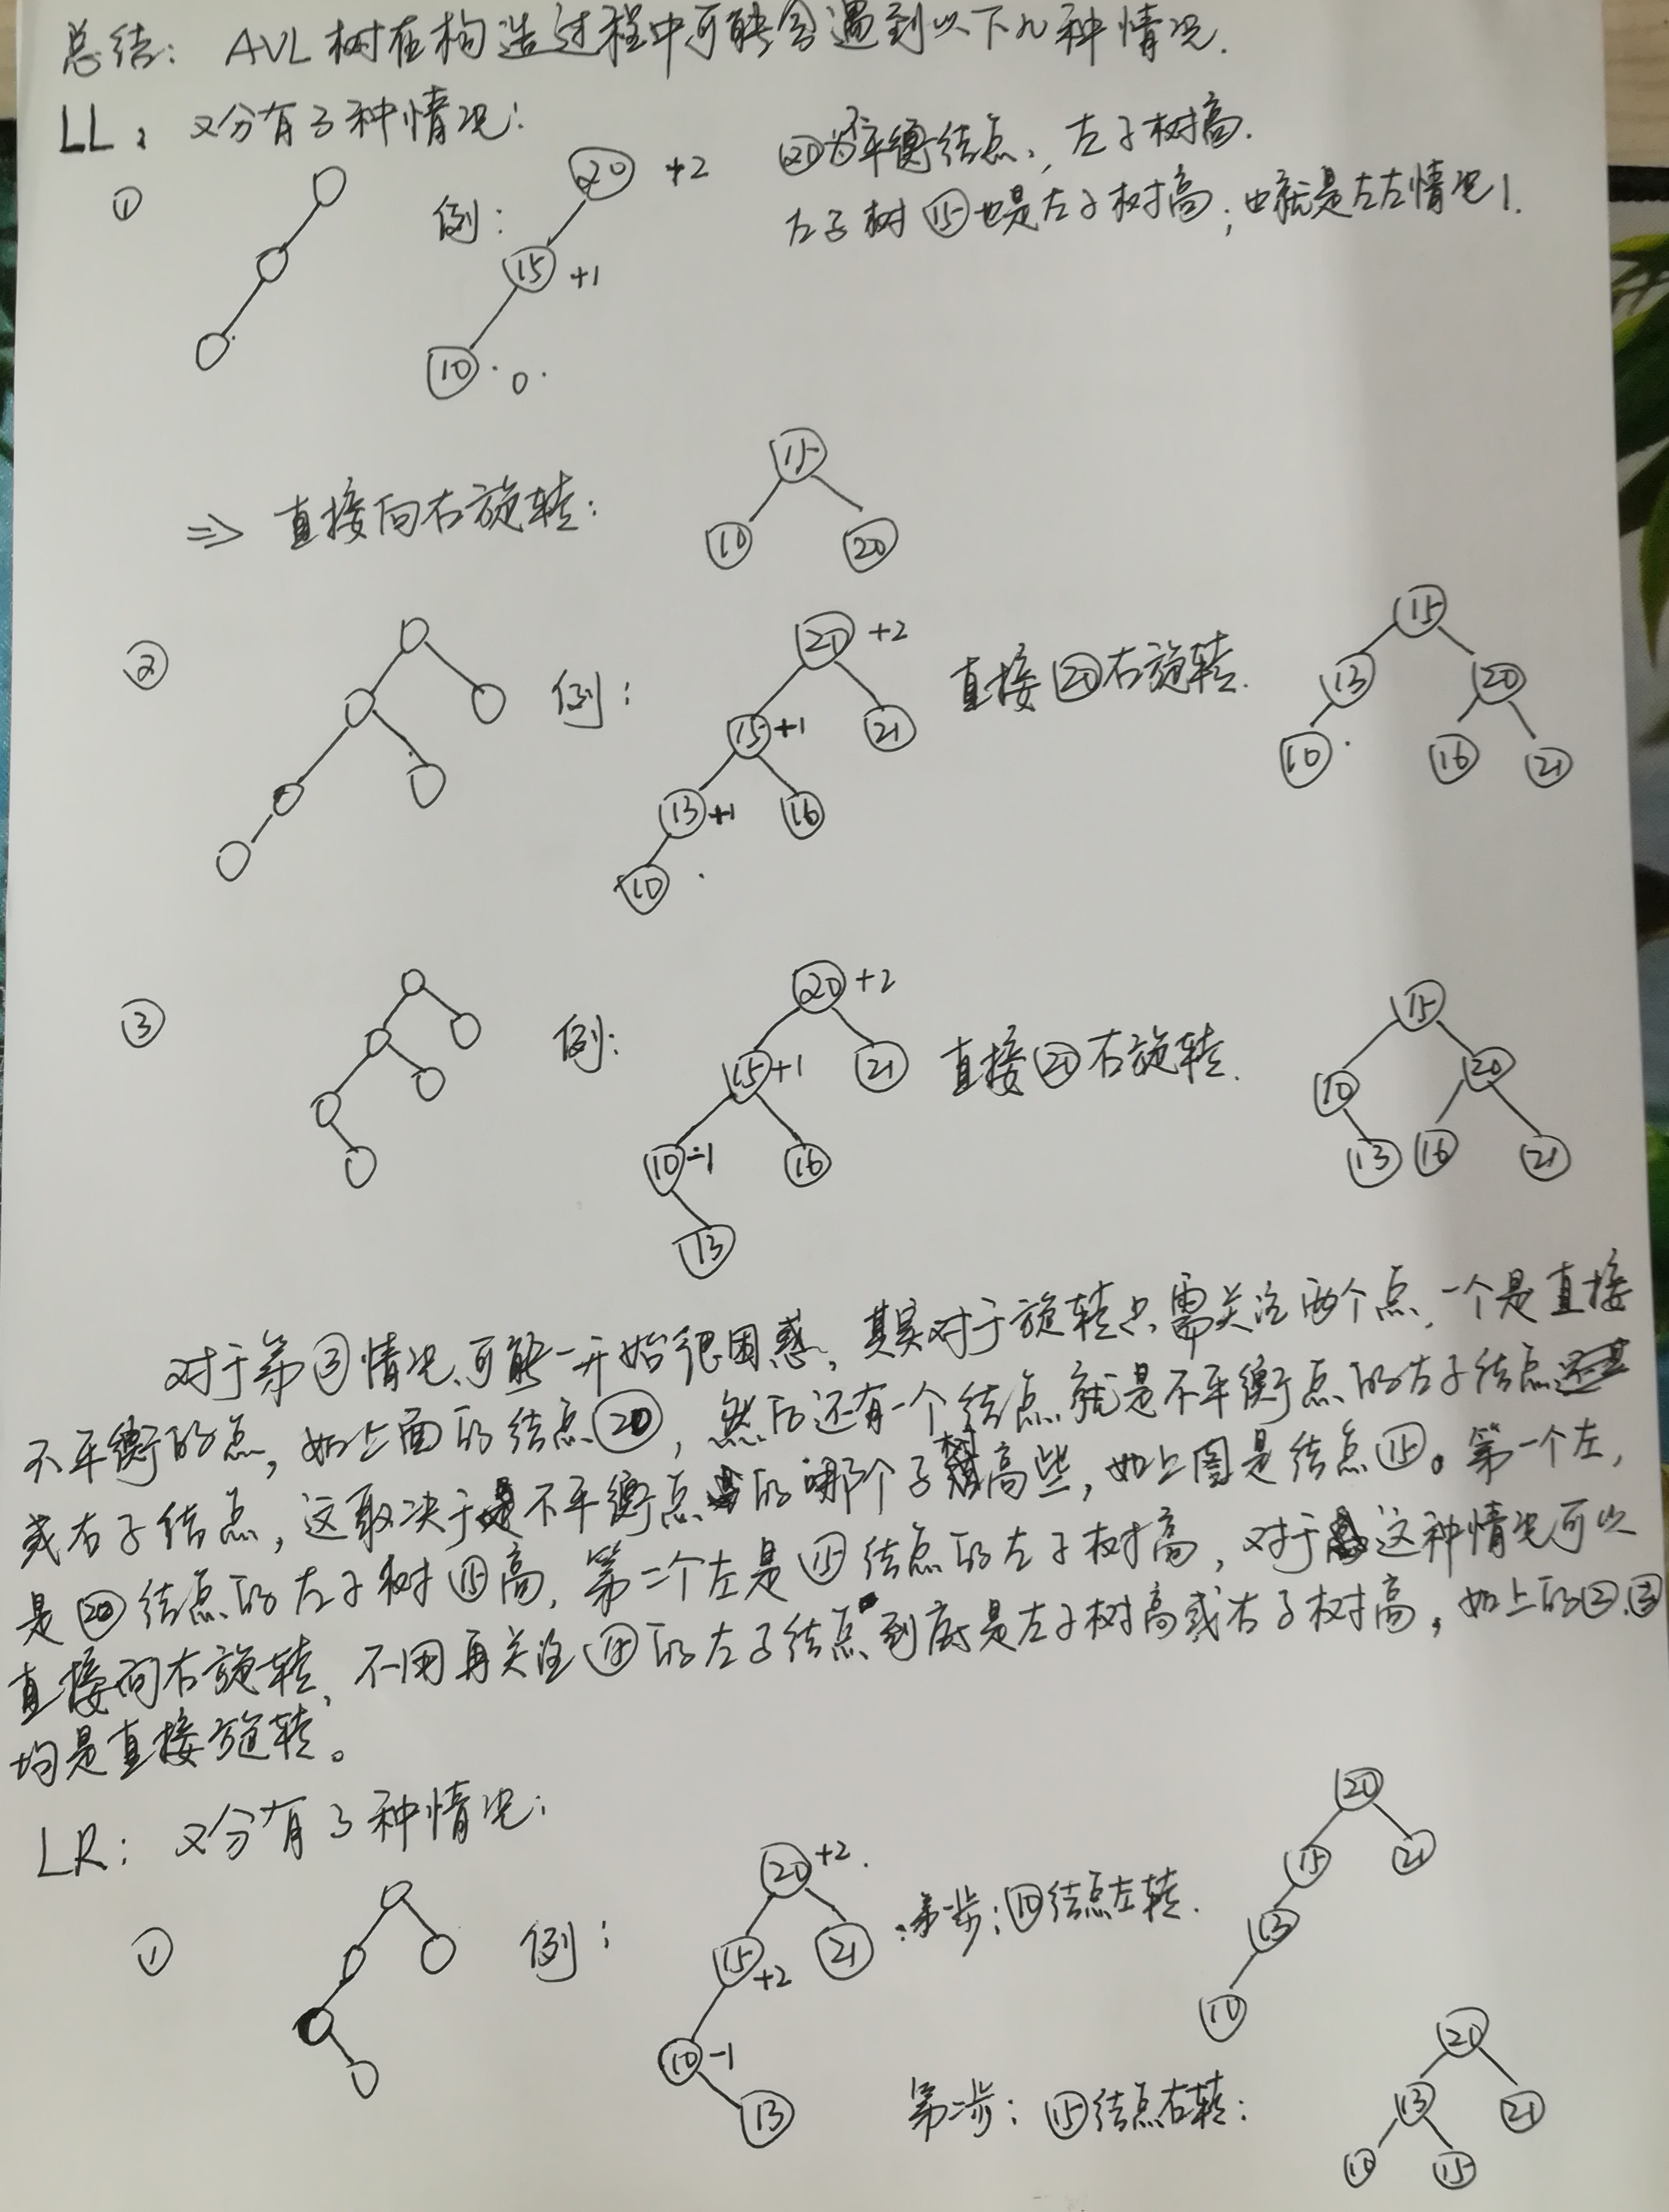 总结: AVL树在构造过程中可能会遇到以下几种情况.
LL: 又分有3种情况:
① 例: 20 +2 ⑳为不平衡结点, 左子树高.
15 +1 左子树⑮也是左子树高, 也就是左左情况!
10 0
⇒ 直接向右旋转: 15
10 20
② 例: 20 +2 直接⑳右旋转. 15
15 +1 21 13 20
13 +1 16 10 16 21
10
③ 例: 20 +2 直接⑳右旋转. 15
15 +1 21 10 20
10 -1 16 13 16 21
13
对于第③情况,可能一开始很困惑, 其实对于旋转只需关注两个点, 一个是直接
不平衡的点, 如上面的结点⑳, 然后还有一个结点就是不平衡点的左子结点
或右子结点, 这取决于不平衡点的哪个子树高些, 如上图是结点⑮。第一个左,
是⑳结点的左子树⑮高, 第二个左是⑮结点的左子树高, 对于这种情况可以
直接向右旋转, 不用再关注⑮的左子结点到底是左子树高或右子树高, 如上的②,③
均是直接旋转。
LR: 又分有3种情况:
① 例: 20 +2 第一步: ⑩结点左转. 20
15 +2 21 15 21
10 -1 13
13 10
第二步: ⑮结点右转: 20
13 21
10 15